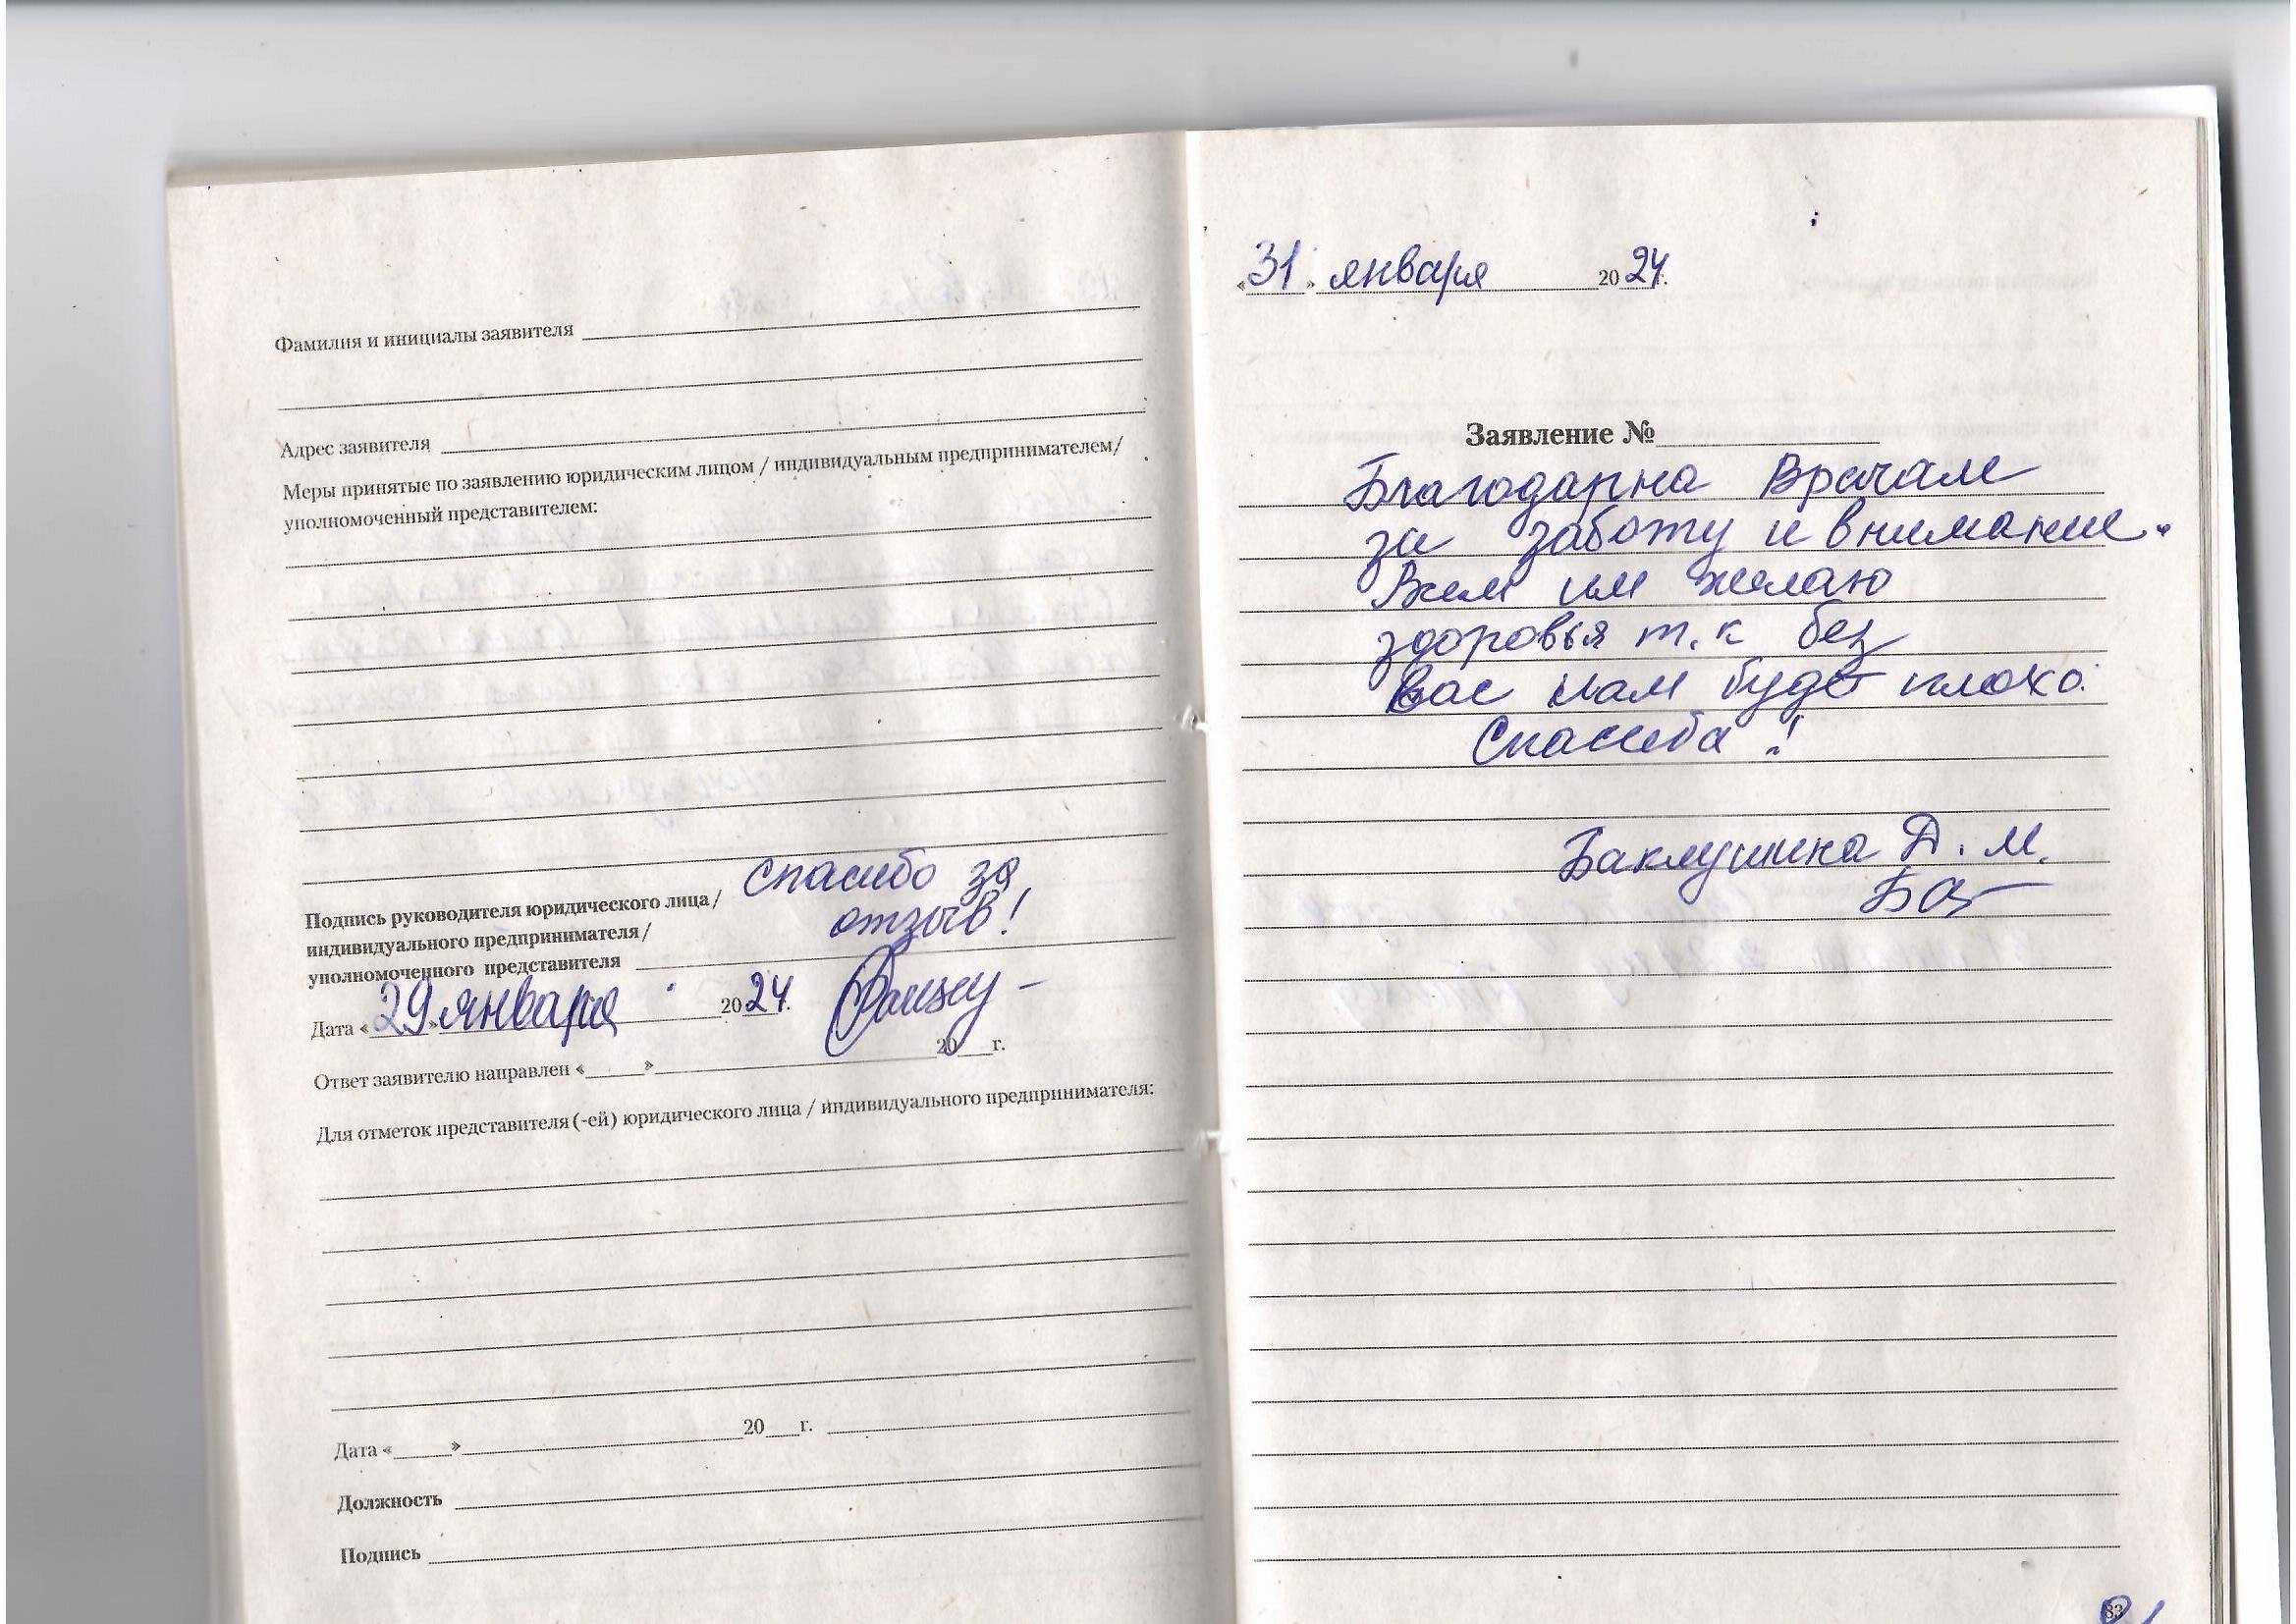 Фамилия и инициалы заявителя
Адрес заявителя
Меры принятые по заявлению юридическим лицом / индивидуальным предпринимателем/
уполномоченный представителем:
спасибо за
отзыв!
Подпись руководителя юридического лица /
индивидуального предпринимателя /
уполномоченного представителя
Дата « 29 » января 20 24 г.
Ответ заявителю направлен «____» 20__г.
Для отметок представителя (-ей) юридического лица / индивидуального предпринимателя:
Дата «____» 20__г.
Должность
Подпись
« 31 » января 20 24 г.
Заявление №
Благодарна Врачам
за заботу и внимание.
Всем им желаю
здоровья т.к без
Вас нам будет плохо.
Спасиба!
Баклушина Д. М.
33